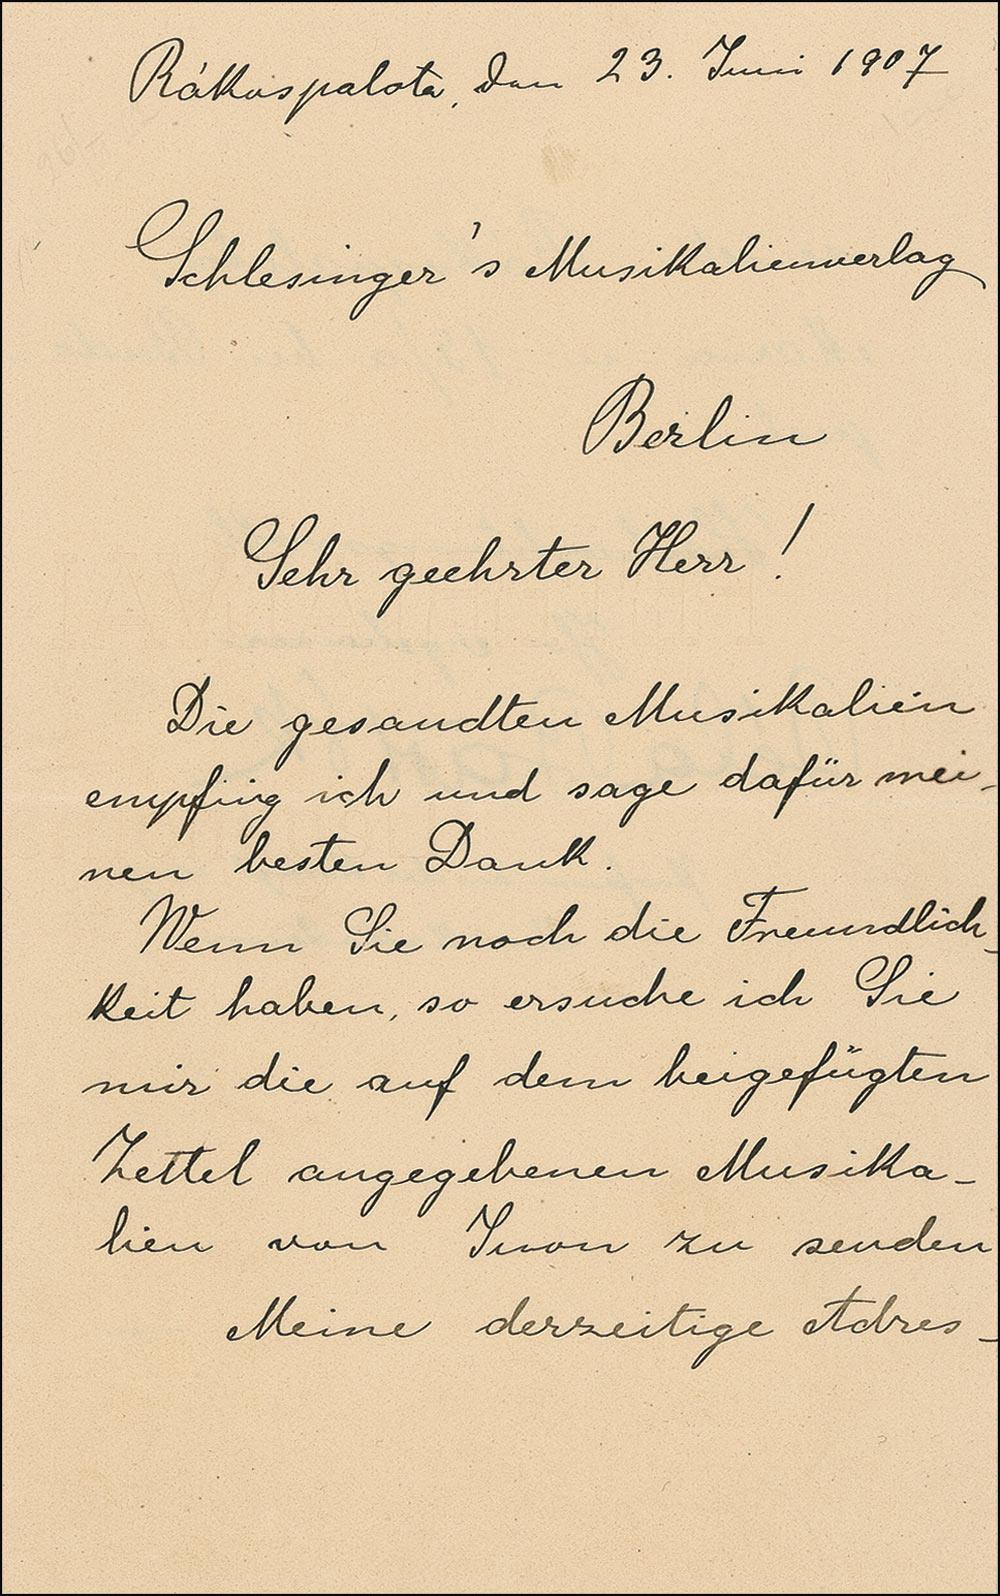 Rákospalota, den 23. Juni 1907
Schlesinger's Musikalienverlag
Berlin
Sehr geehrter Herr!
Die gesandten Musikalien
empfing ich und sage dafür mei-
nen besten Dank.
Wenn Sie noch die Freundlich-
keit haben, so ersuche ich Sie
mir die auf dem beigefügten
Zettel angegebenen Musika-
lien von Juon zu senden
Meine derzeitige Adres-